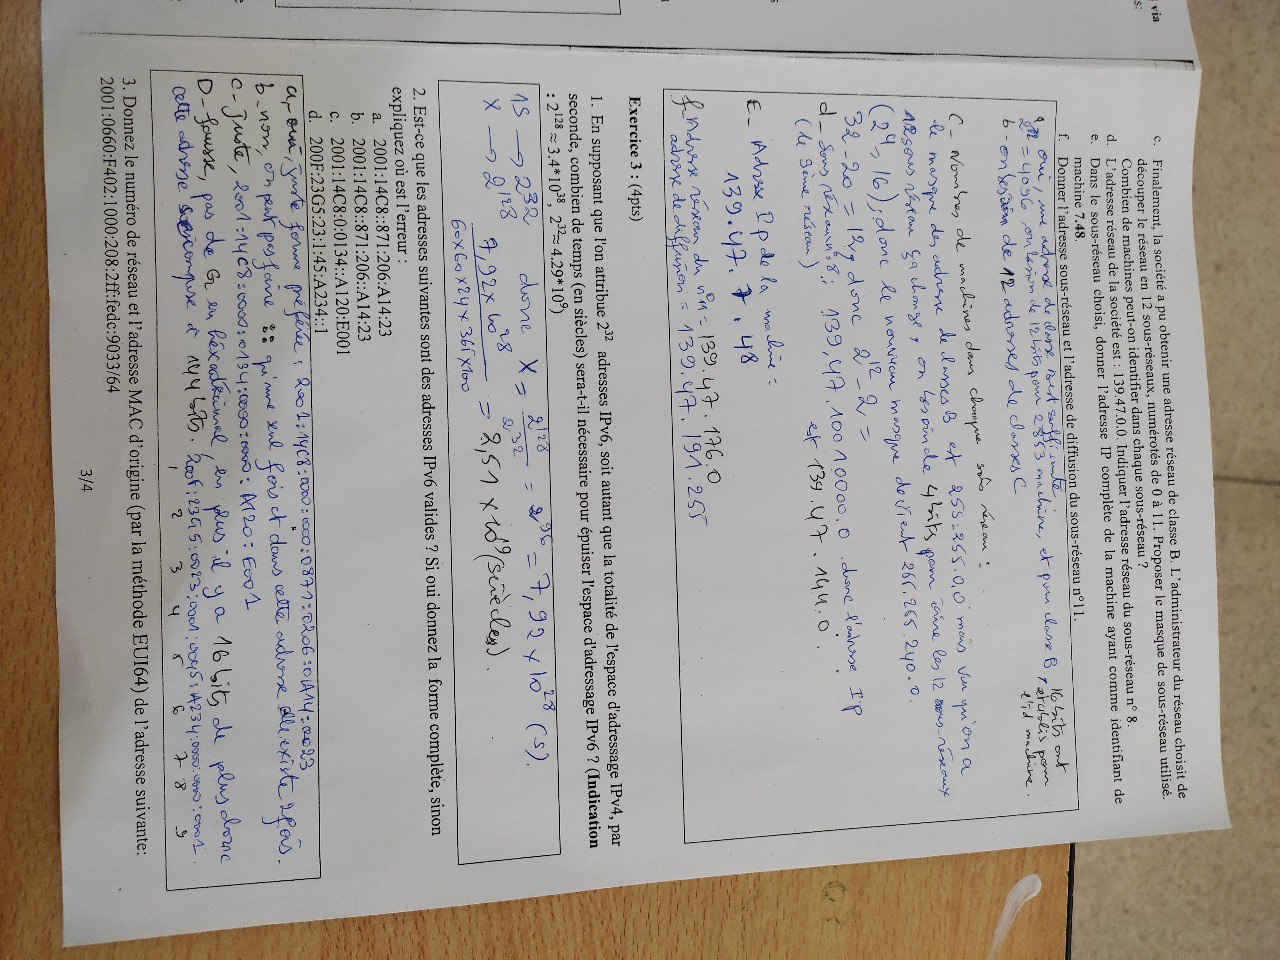 via
s:
c. Finalement, la société a pu obtenir une adresse réseau de classe B. L'administrateur du réseau choisit de
découper le réseau en 12 sous-réseaux, numérotés de 0 à 11. Proposer le masque de sous-réseau utilisé.
Combien de machines peut-on identifier dans chaque sous-réseau ?
d. L'adresse réseau de la société est : 139.47.0.0. Indiquer l'adresse réseau du sous-réseau n° 8.
e. Dans le sous-réseau choisi, donner l'adresse IP complète de la machine ayant comme identifiant de
machine 7.48.
f. Donner l'adresse sous-réseau et l'adresse de diffusion du sous-réseau n°11.
a- oui, une adresse de classe B est suffisante,
2^12 = 4096, on besion de 12 bits pour 2853 machine, et pour classe B, 16 bits ont
etablis pour
l'id machine.
b - on besion de 12 adresses de classes C
C - Nombres de machines dans chaque sous réseau :
le masque des adresse de classes B est 255.255.0.0 mais vu qu'on a
12 sous réseau ça change, on besoin de 4 bits pour faire les 12 sous-réseaux
(2^4 = 16) ; donc le nouveau masque devient 255.255.240.0.
32-20 = 12, donc 2^12 - 2 =
d - Sous réseau n°8 : 139,47.10010000.0 donc l'adresse Ip
(le 9ème réseau) est 139.47.144.0.
E - Adresse Ip de la machine =
139.47.7.48
f- Adresse réseau du n°11 = 139.47.176.0
adresse de diffusion = 139.47.191.255
Exercice 3 : (4pts)
1. En supposant que l'on attribue 2^32 adresses IPv6, soit autant que la totalité de l'espace d'adressage IPv4, par
seconde, combien de temps (en siècles) sera-t-il nécessaire pour épuiser l'espace d'adressage IPv6 ? (Indication
: 2^128 ≈ 3.4*10^38, 2^32 ≈ 4.29*10^9)
1S → 2^32 donc X = 2^128 / 2^32 = 2^96 = 7,92 x 10^28 (s).
X → 2^128
7,92 x 10^28 / 60x60x24x365x100 = 2,51 x 10^19 (Siècles).
2. Est-ce que les adresses suivantes sont des adresses IPv6 valides ? Si oui donnez la forme complète, sinon
expliquez où est l'erreur :
a. 2001:14C8::871:206:A14:23
b. 2001:14C8::871:206::A14:23
c. 2001:14C8:0:0134::A120:E001
d. 200F:23G5:23:1:45:A234::1
a - oui, juste forme préférée : 2001:14C8:0000:0000:0871:0206:0A14:0023
b - non, on peut pas faire :: qu'une seul fois et dans cette adresse elle existe 2 fois.
C - Juste, 2001:14C8:0000:0134:0000:0000:A120:E001
D - fausse, pas de G en héxadécimal, en plus il y a 16 bits de plus donc
cette adresse compose d 144 bits. 200F:23G5:0023:0001:0045:A234:0000:0000:0001.
1 2 3 4 5 6 7 8 9
3. Donnez le numéro de réseau et l'adresse MAC d'origine (par la méthode EUI64) de l'adresse suivante:
2001:0660:F402:1000:208:2ff:fedc:9033/64
3/4